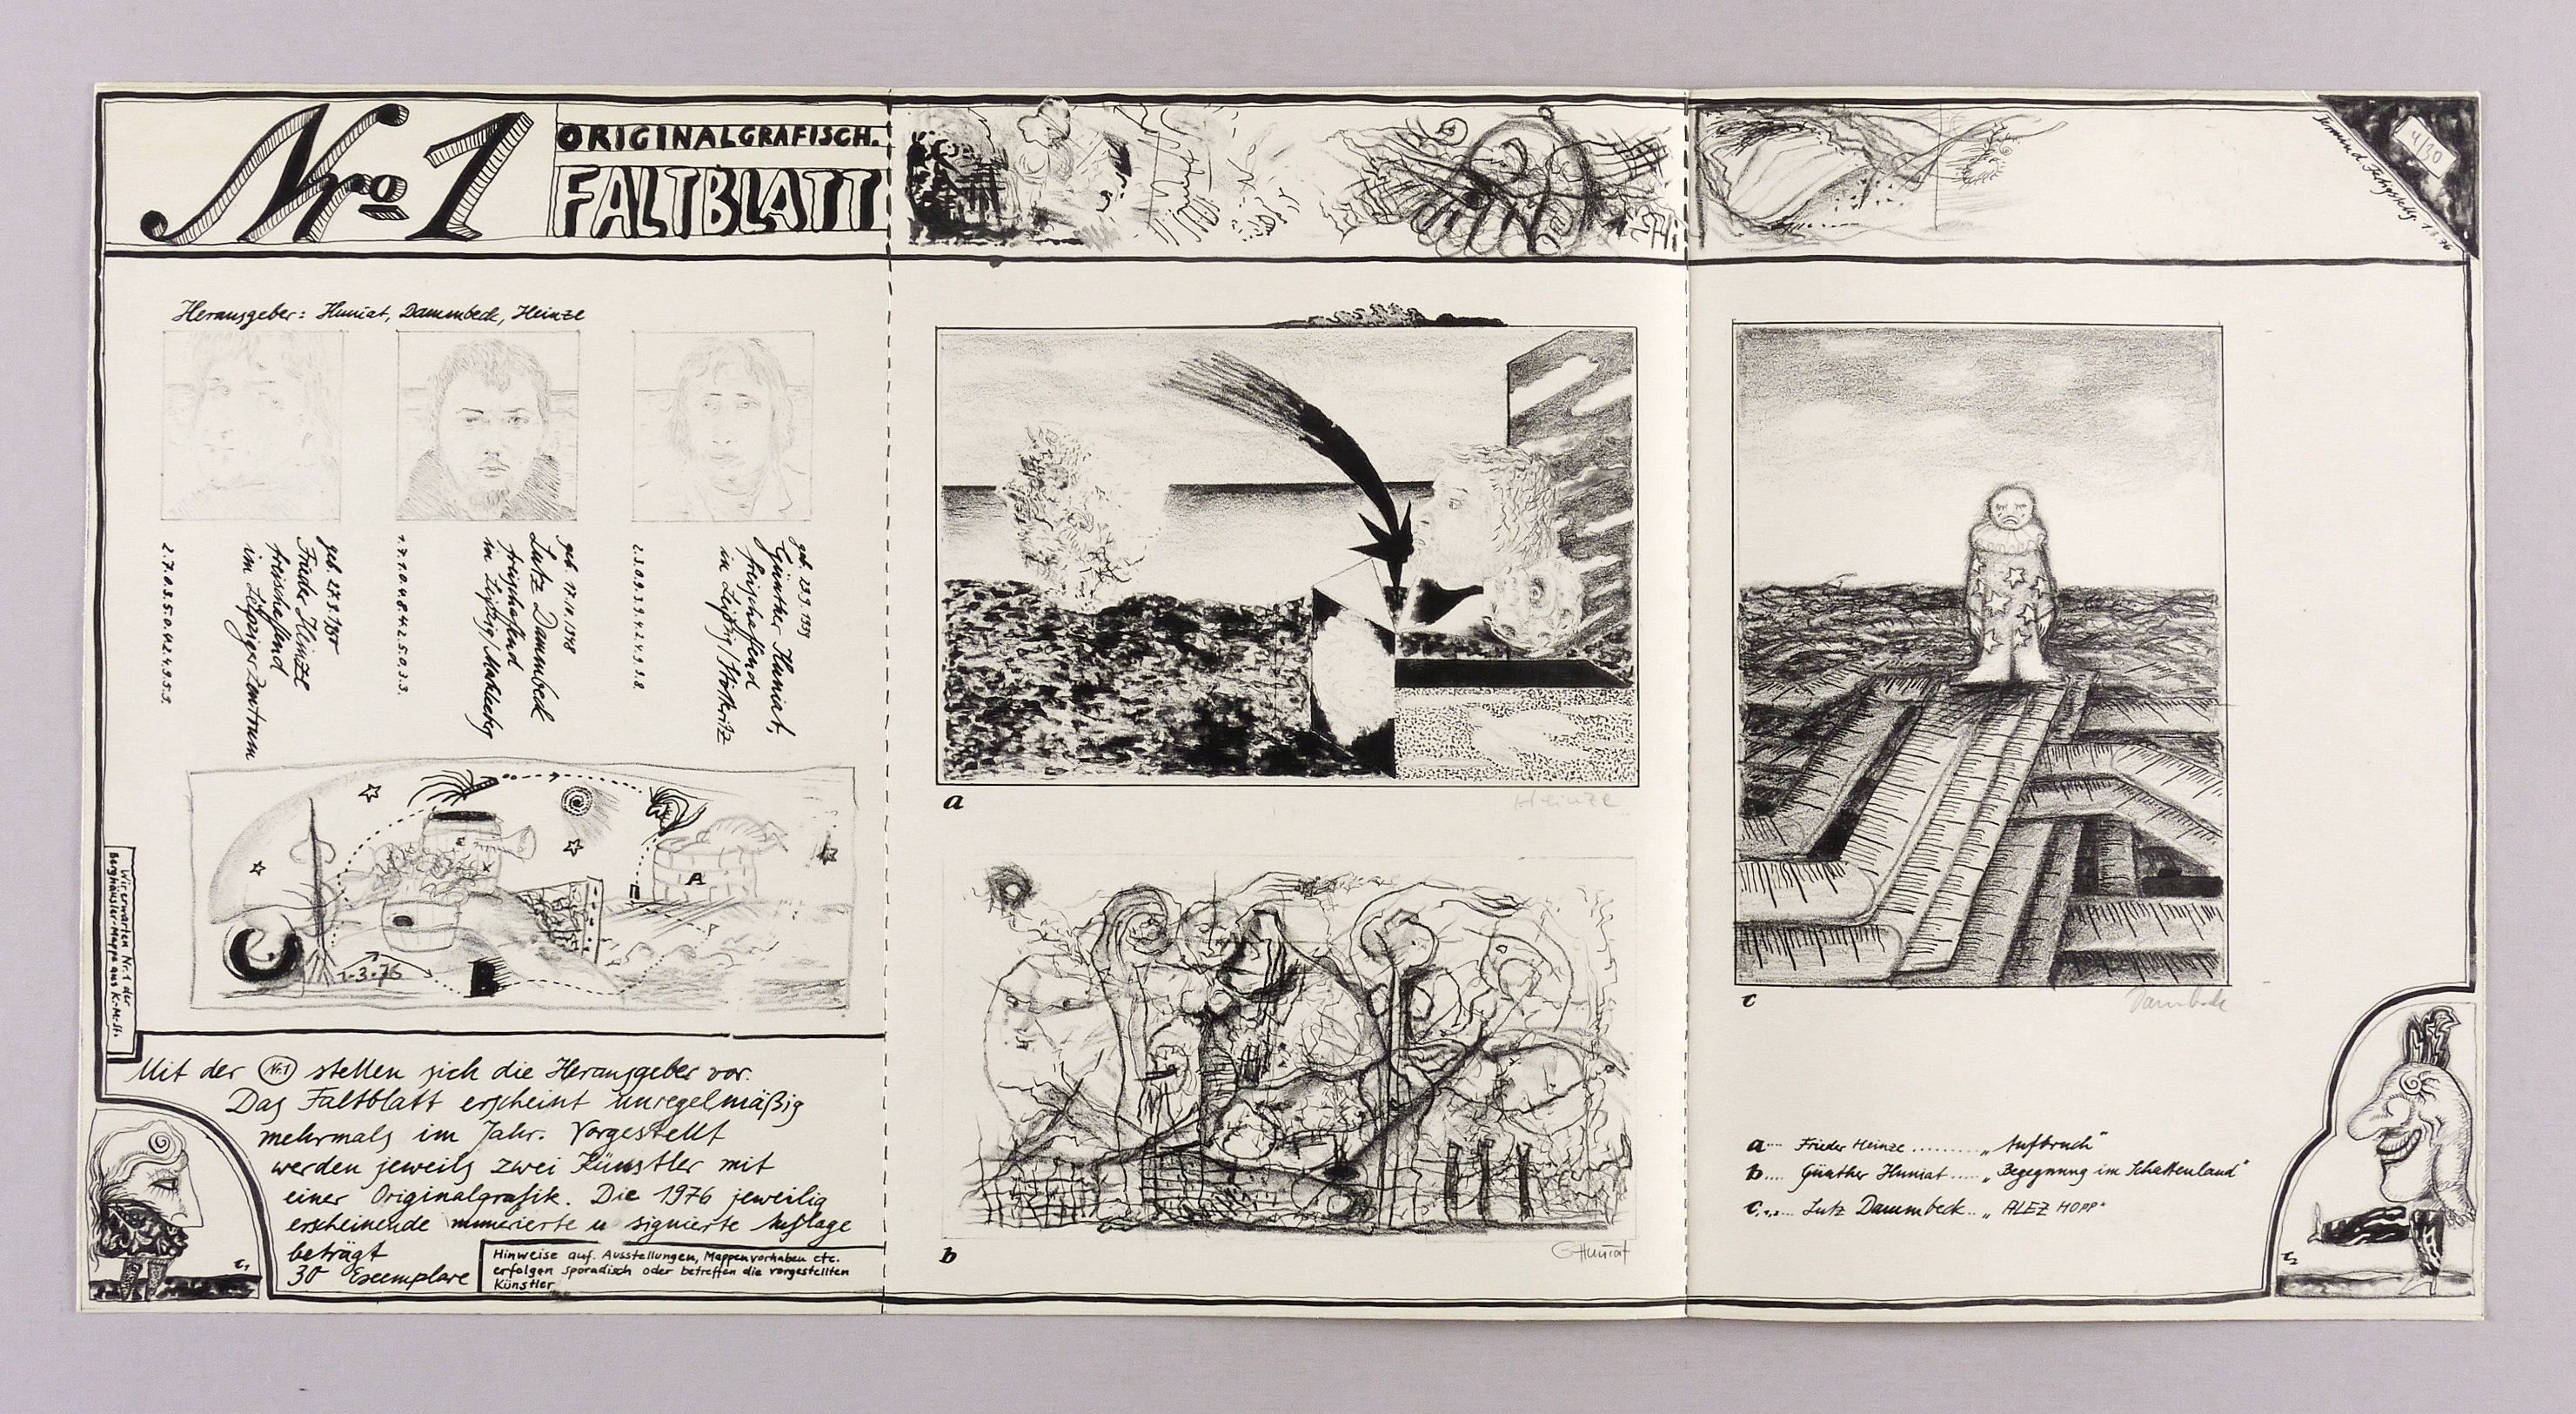 Nro 1
ORIGINALGRAFISCH.
FALTBLATT
4/30
Herausgeber: Huniat, Dammbeck, Heinze
Frieder Heinze
freischaffend
im Leipziger Zentrum
geb. 17.10.1948
Lutz Dammbeck
freischaffend
in Leipzig/Markkleeberg
Günther Huniat,
freischaffend
in Leipzig/Stötteritz
A
1-3-75
B
Wir erwarten Nr.1 der
Berghäusler-Mappe aus K.-M.-St.
Mit der Nr.1 stellen sich die Herausgeber vor.
Das Faltblatt erscheint unregelmäßig
mehrmals im Jahr. Vorgestellt
werden jeweils zwei Künstler mit
einer Originalgrafik. Die 1976 jeweilig
erscheinende numerierte u signierte Auflage
beträgt
30 Exemplare
Hinweise auf. Ausstellungen, Mappenvorhaben etc.
erfolgen sporadisch oder betreffen die vorgestellten
Künstler
a
Heinze
b
GHuniat
c
Dammbeck
a.... Frieder Heinze .......... „Aufbruch"
b.... Günther Huniat ..... „Begegnung im Schattenland"
c.... Lutz Dammbeck... „ALEZ HOPP"